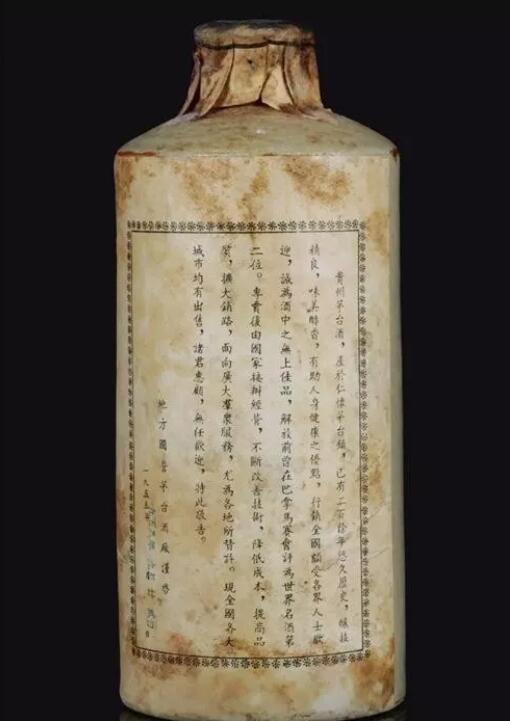 貴州茅台酒，產於仁懷茅台鎮，已有二百餘年悠久歷史，釀技
精良，味美醇香，有助人身健康之優點，行銷全國頗受各界人士歡
迎，誠為酒中之無上佳品，解放前曾在巴拿馬賽會評為世界名酒第
二位。專賣後由國家接辦經營，不斷改善技術，降低成本，提高品
質，擴大銷路，面向廣大羣衆服務，尤為各地所贊許。現全國各大
城市均有出售，諸君惠顧，無任歡迎，特此敬告。
地方國營茅台酒廠謹啓
一九五五年